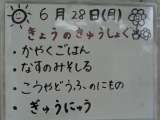 6月28日(月)
きょうのきゅうしょく
・かやくごはん
・なすのみそしる
・こうやどうふのにもの
・ぎゅうにゅう